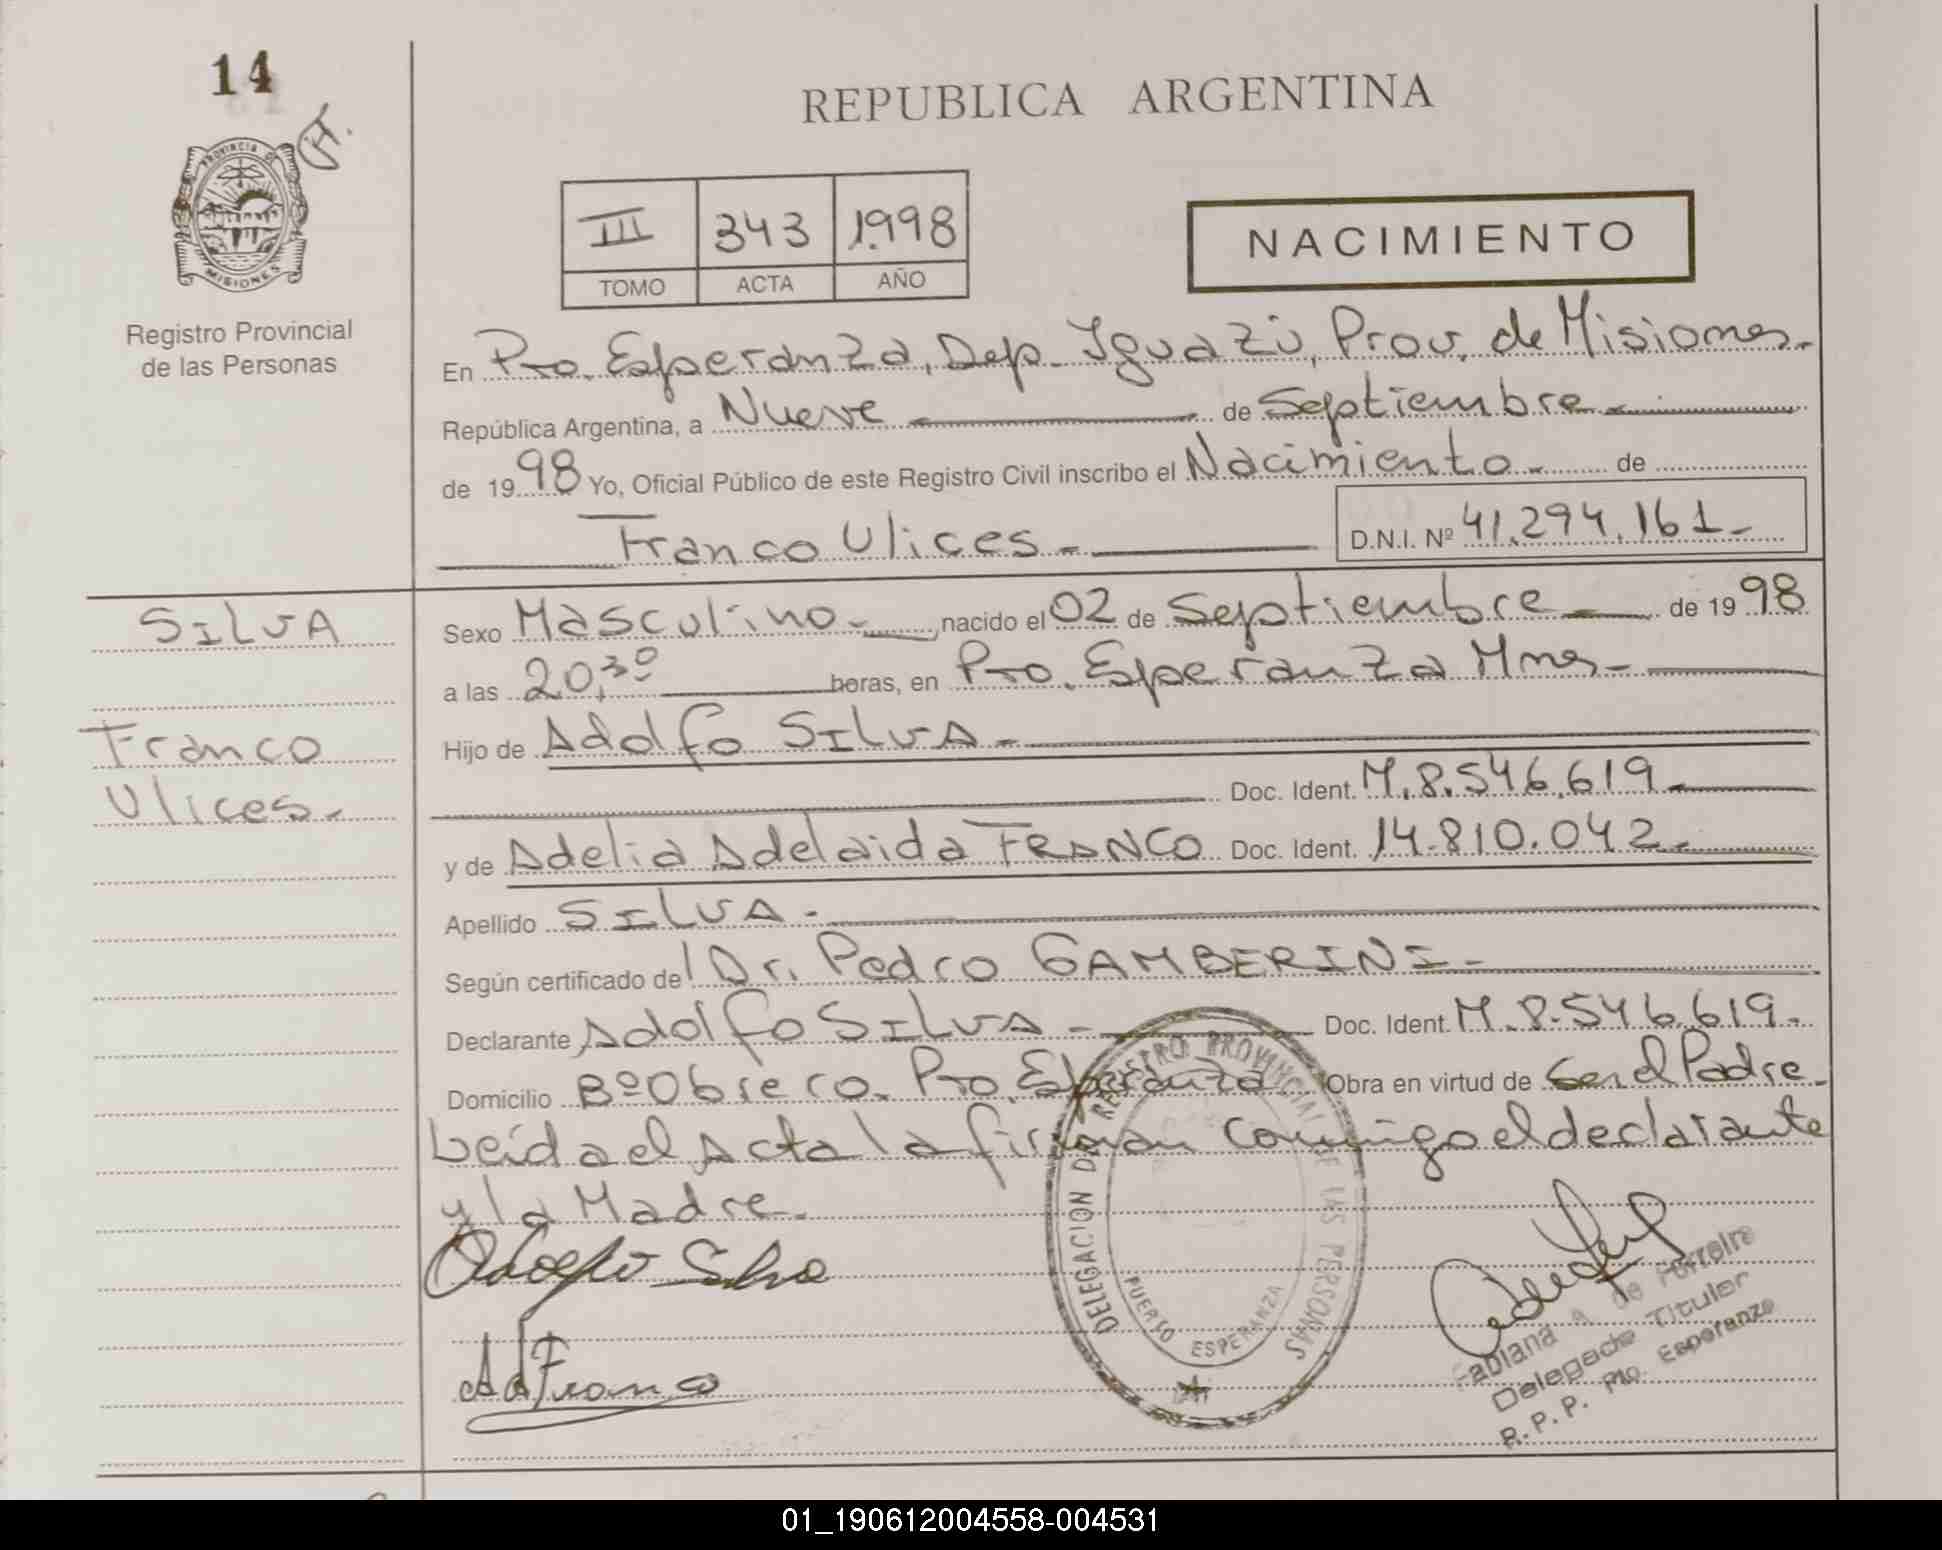 14
H.
PROVINCIA DE
MISIONES
Registro Provincial
de las Personas
REPUBLICA ARGENTINA
III 343 1.998
TOMO ACTA AÑO
NACIMIENTO
En Pto. Esperanza, Dep. Iguazú, Prov. de Misiones.
República Argentina, a Nueve de Septiembre
de 1998 Yo, Oficial Público de este Registro Civil inscribo el Nacimiento de
Franco Ulices D.N.I. Nº 41.294.161
SILVA
Franco
Ulices
Sexo Masculino, nacido el 02 de Septiembre de 1998
a las 20,30 horas, en Pto. Esperanza Mnes
Hijo de Adolfo SILVA
Doc. Ident. M.8.546.619
y de Adelia Adelaida FRANCO Doc. Ident. 14.810.042
Apellido SILVA
Según certificado del Dr. Pedro GAMBERINI
Declarante Adolfo SILVA Doc. Ident. M.8.546.619
Domicilio Bº Obrero. Pto. Esperanza Obra en virtud de Ser el Padre
Leída el Acta la firman conmigo el declarante
y la Madre.
Adolfo Silva
Ad Franco
DELEGACION DEL REGISTRO PROVINCIAL DE LAS PERSONAS
PUERTO ESPERANZA
Fabiana A. de Ferreira
Delegada Titular
R.P.P. Pto. Esperanza
01_190612004558-004531